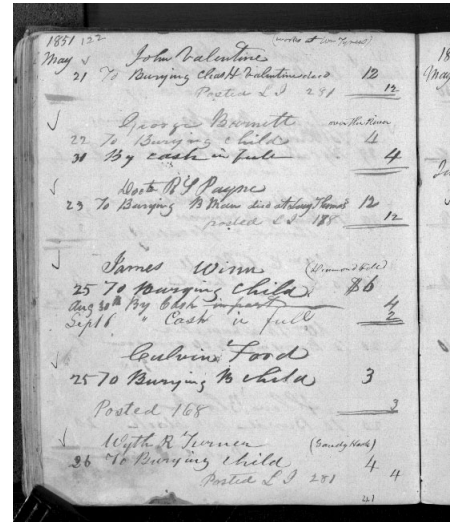 1851 122
(works at Wm
May John Valentine
21 To Burying Chas H Valentine 12
Posted L I 281 12
George Burnett over the River
22 To Burying child 4
30 By cash in full 4
Doct R S Payne
23 To Burying B Man died at Thomas 12
posted L I 188 12
James Winn (Diamond Hill)
25 To Burying Child $6
Aug 30th By Cash in part 4
Sep 16 " Cash in full 2
Calvin Ford
25 To Burying B Child 3
Posted 168 3
Wyth R Turner
26 To Burying child 4
Posted L I 281 4
18
May